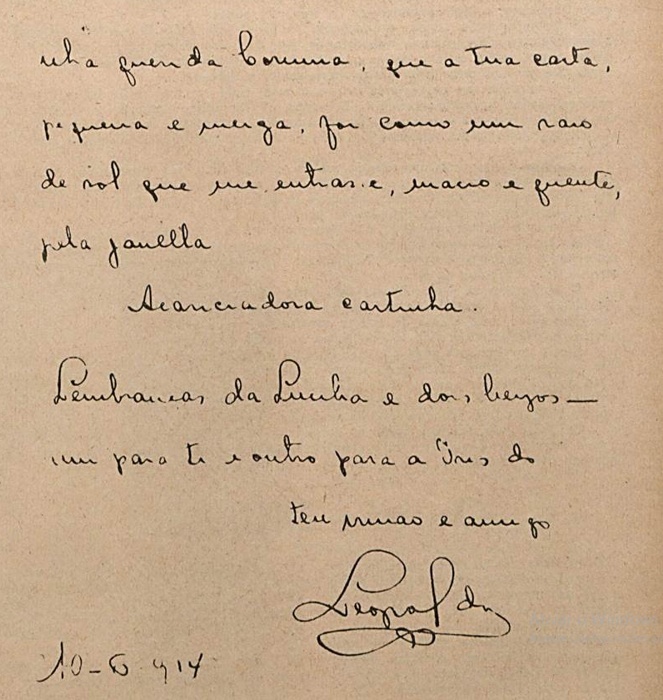 nha querida Corinna, que a tua carta,
pequena e meiga, foi como um raio
de sol que me entrasse, macio e quente,
pela janella
Acariciadora cartinha.
Lembranças da Lucilia e dois beijos —
um para ti e outro para a Iris do
teu irmao e amigo
Leopoldo
10-6-914